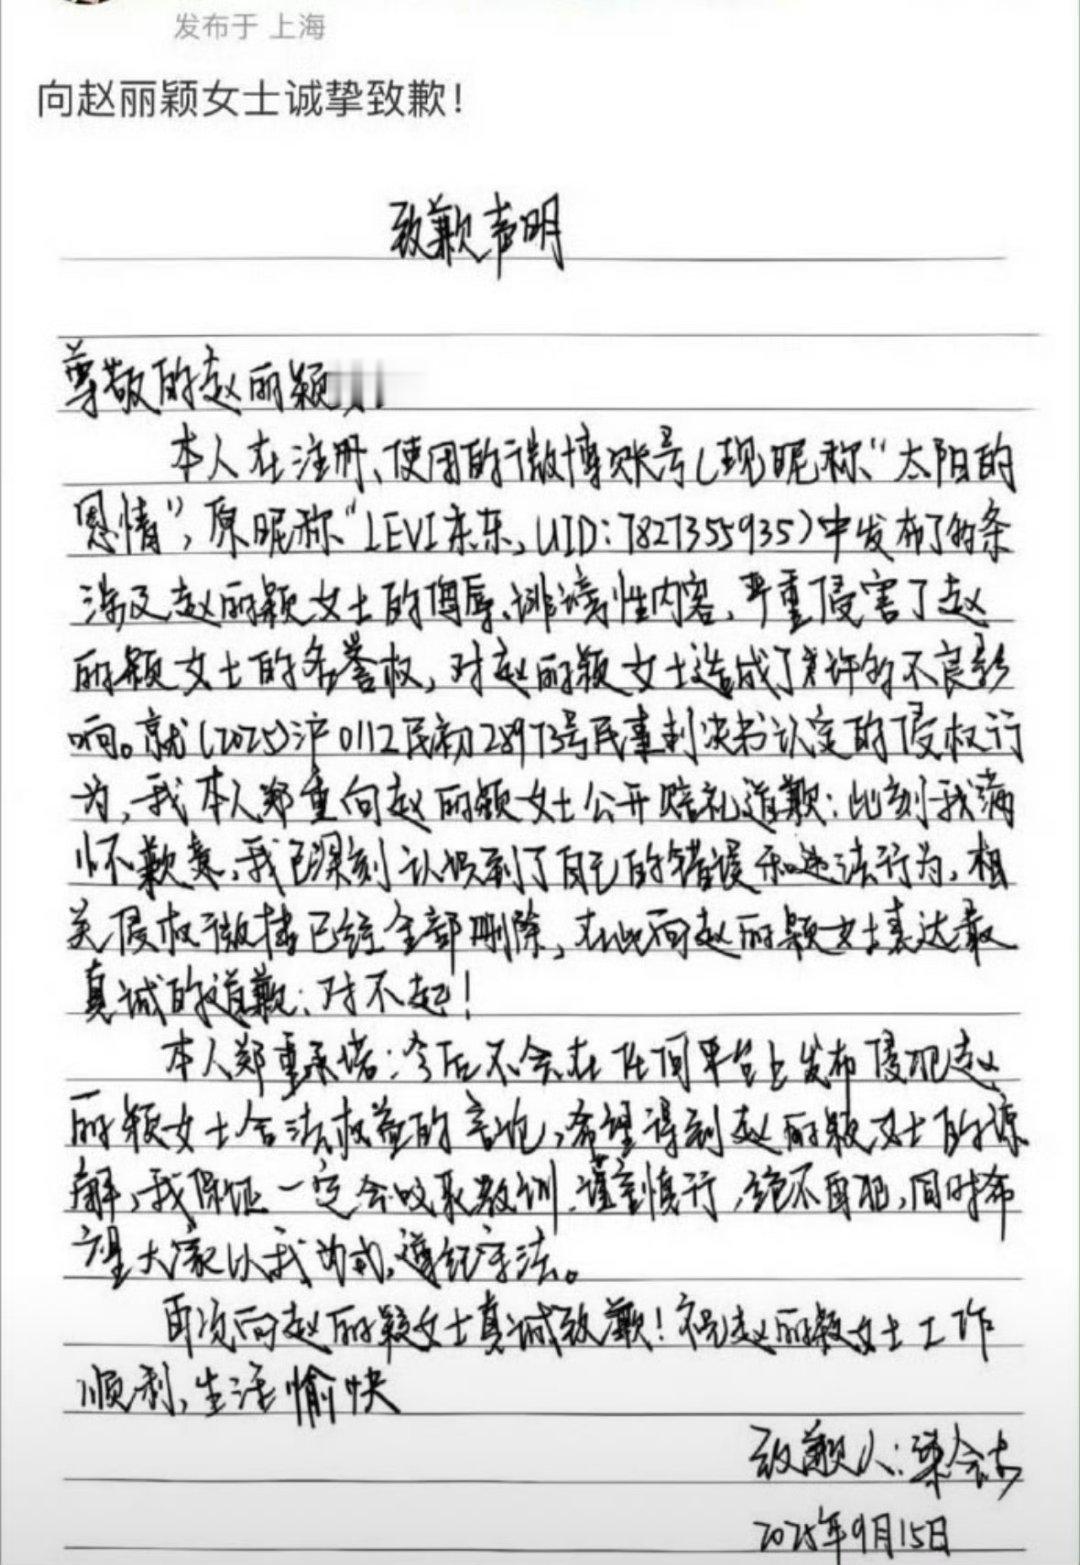 发布于 上海
向赵丽颖女士诚挚致歉！
致歉声明
尊敬的赵丽颖
本人在注册、使用的微博账号(现昵称“太阳的
恩情”，原昵称“LEVI东东，UID：7827355935)中发布了的条
涉及赵丽颖女士的侮辱、诽谤性内容，严重侵害了赵
丽颖女士的名誉权，对赵丽颖女士造成了来许的不良影
响。就(2025)沪0112民初28973号民事判决书认定的侵权行
为，我本人郑重向赵丽颖女士公开赔礼道歉：此刻我满
怀歉意，我已深刻认识到了自己的错误和违法行为，相
关侵权微博已经全部删除，在此向赵丽颖女士表达最
真诚的道歉：对不起！
本人郑重承诺：今后不会在任何平台上发布侵犯赵
丽颖女士合法权益的言论，希望得到赵丽颖女士的谅
解，我保证一定会吸取教训、谨言慎行，绝不再犯，同时希
望大家以我为戒，遵纪守法。
再次向赵丽颖女士真诚致歉！祝赵丽颖女士工作
顺利，生活愉快
致歉人：梁
2025年9月15日